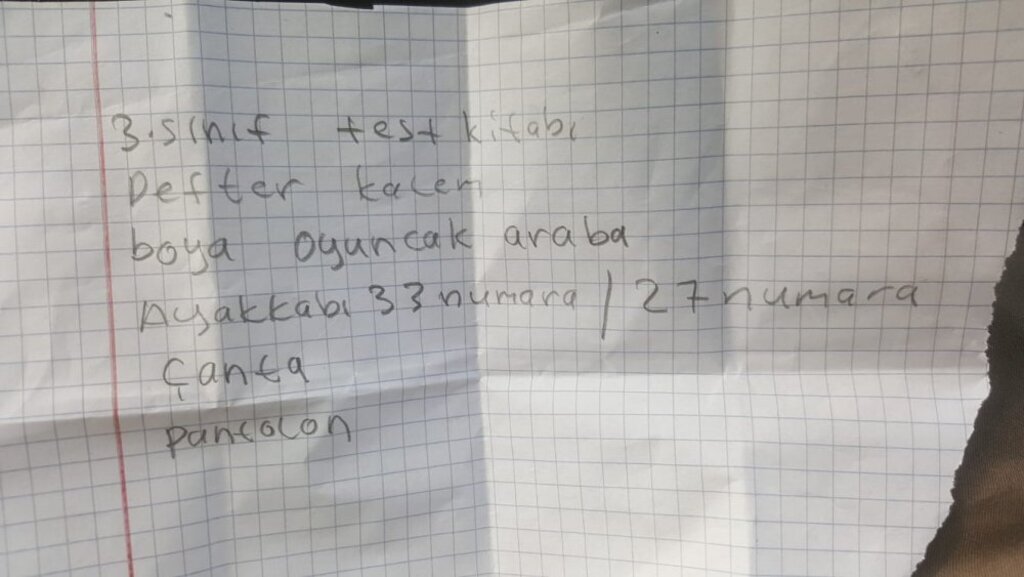 3.sınıf test kitabı
Defter kalem
boya oyuncak araba
Ayakkabı 33 numara / 27 numara
çanta
pantolon